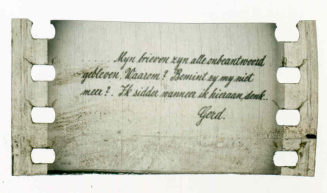 Myn brieven zyn alle onbeantwoord
gebleven. Waarom? Bemint zy my niet
meer? . Ik sidder wanneer ik hieraan denk.
Gerd.